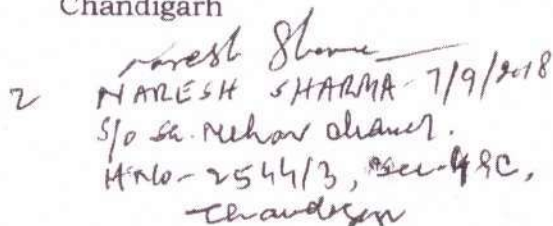 Chandigarh
Naresh Sharma
2 NARESH SHARMA - 7/9/2018
S/o Sh. Mehar chand.
H.No - 2544/3, Sec-49C,
Chandigarh